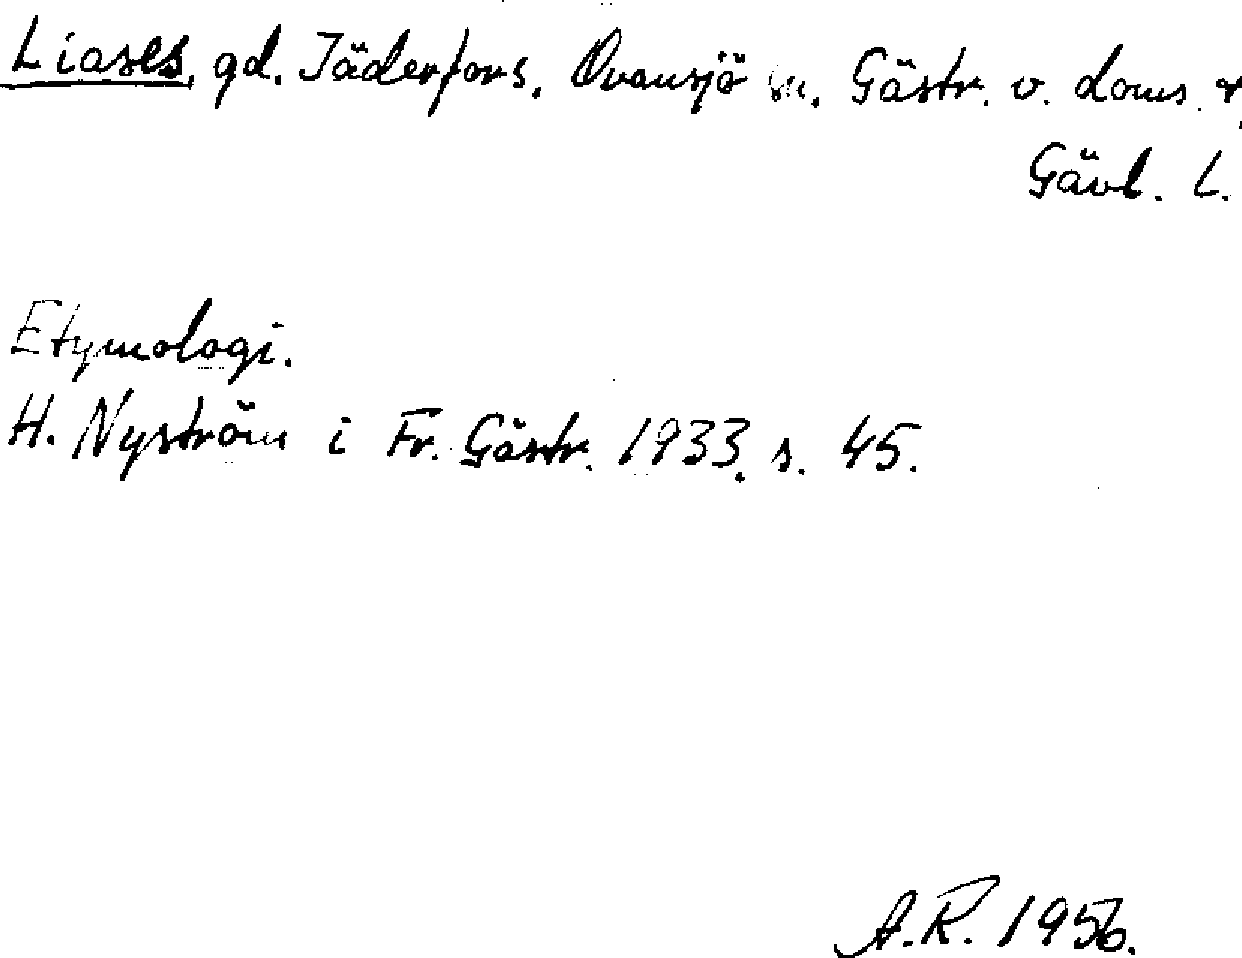 Liases, gd. Jäderfors, Ovansjö sn. Gästr. v. doms. r
Gävl. L.
Etymologi.
H. Nyström i Fr. Gästr. 1933, s. 45.
A.R. 1956.